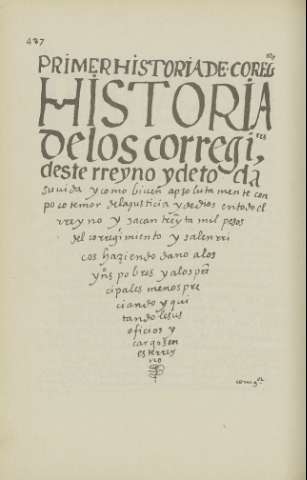 487
PRIMER HISTORIA DE COREG
HISTORIA
delos corregi,res
deste rreyno y de toda
su uida y como biuen apsolutamente con
poco temor dela justicia y de dios en todo el
rreyno y sacan treynta mil pesos
del corregimiento y salen rri
cos haziendo dano a los
yns pobres y a los prin
cipales menos pre
ciando y qui
tandoles sus
oficios y
cargos en
este rrey
no